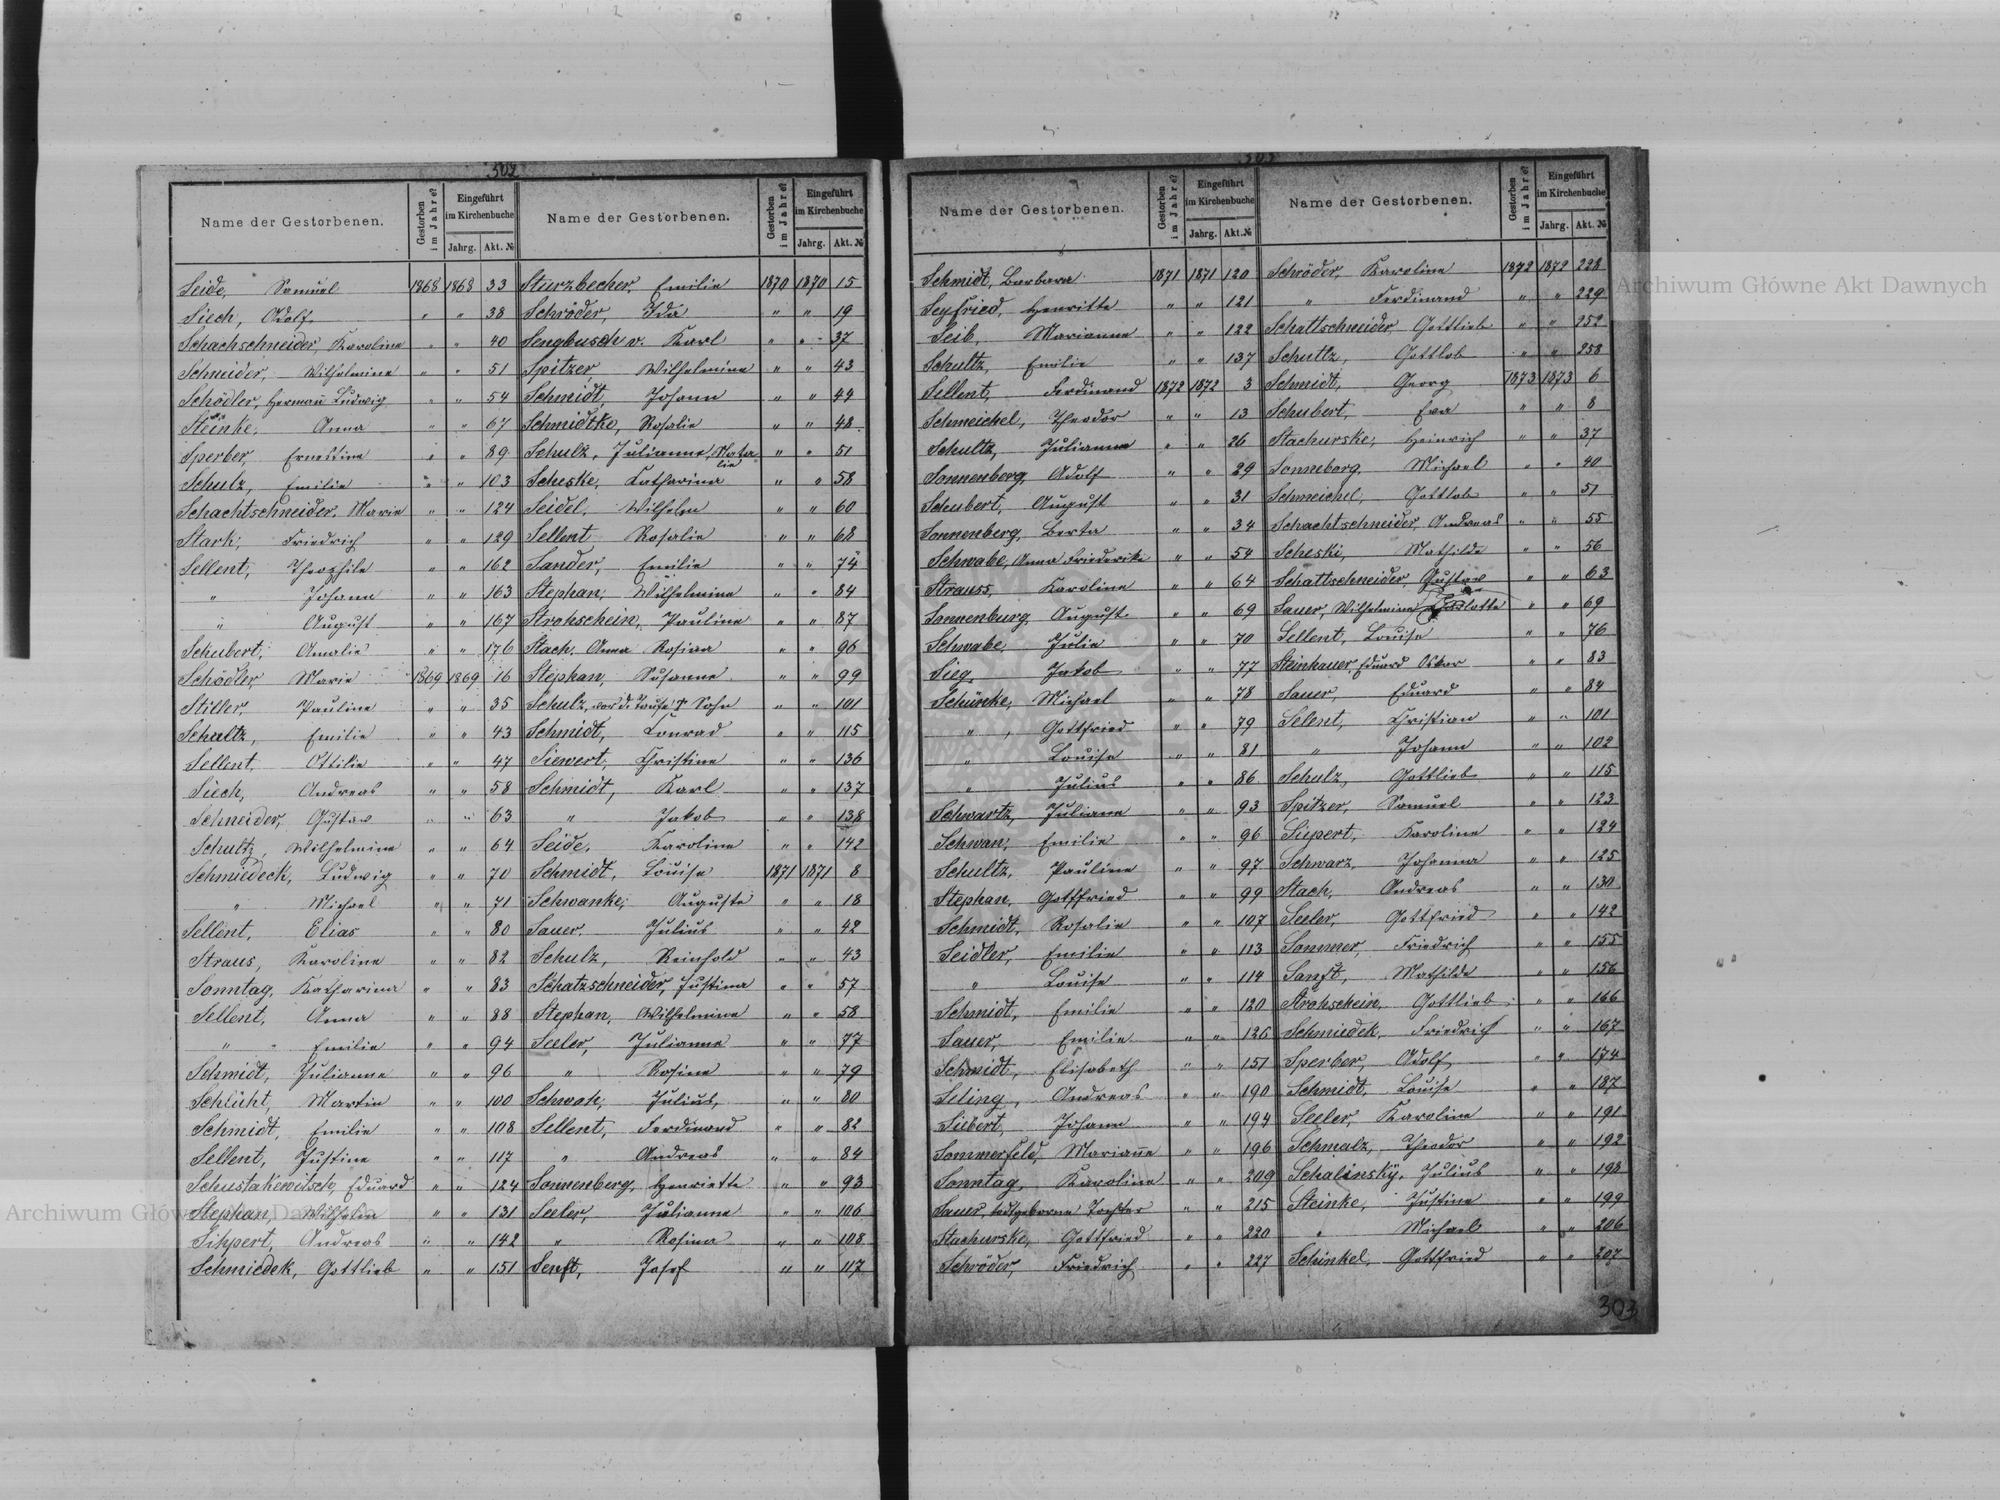 302
Name der Gestorbenen. Gestorben im Jahre? Eingeführt im Kirchenbuche Jahrg. Akt. №
Seide, Samuel 1868 1868 33
Siech, Adolf " " 38
Schachschneider, Karoline " " 40
Schneider, Wilhelmine " " 51
Schödler, Herman Ludwig " " 54
Steinke, Anna " " 67
Sperber, Ernestine " " 89
Schulz, Emilie " " 103
Schachtschneider, Marie " " 124
Stark, Friedrich " " 129
Sellent, Theophile " " 162
" Johann " " 163
" August " " 167
Schubert, Amalie " " 176
Schödler, Marie 1869 1869 16
Stiller, Pauline " " 35
Schultz, Emilie " " 43
Sellent, Ottilie " " 47
Siech, Andreas " " 58
Schneider, Gustav " " 63
Schultz, Wilhelmine " " 64
Schmiedeck, Ludwig " " 70
" Michael " " 71
Sellent, Elias " " 80
Straus, Karoline " " 82
Sonntag, Katharina " " 83
Sellent, Anna " " 88
" Emilie " " 94
Schmidt, Julianne " " 96
Schlücht, Martin " " 100
Schmidt, Emilie " " 108
Sellent, Justine " " 117
Schustakewitsch, Eduard " " 124
Stephan, Wilhelm " " 131
Sippert, Andreas " " 142
Schmiedek, Gottlieb " " 151
Name der Gestorbenen. Gestorben im Jahre? Eingeführt im Kirchenbuche Jahrg. Akt. №
Sturzbecher, Emilie 1870 1870 15
Schröder, Ida " " 19
Sengbusch v. Karl " " 37
Spitzer Wilhelmine " " 43
Schmidt, Johann " " 44
Schmidtke, Rosalie " " 48
Schulz, Julianne, Natalie " " 51
Scheske, Catharina " " 58
Seidel, Wilhelm " " 60
Sellent Rosalie " " 68
Sander, Emilie " " 74
Stephan, Wilhelmine " " 84
Strohschein, Pauline " " 87
Stach, Anna Rosina " " 96
Stephan, Susanna " " 99
Schulz, vor d. Taufe † Sohn " " 101
Schmidt, Conrad " " 115
Siewert, Christine " " 136
Schmidt, Karl " " 137
" Jakob " " 138
Seide, Karoline " " 142
Schmidt, Louise 1871 1871 8
Schwanke, Auguste " " 18
Sauer, Julius " " 42
Schulz, Reinhold " " 43
Schatzschneider, Justina " " 57
Stephan, Wilhelmine " " 58
Seeler, Julianne " " 77
" Rosine " " 79
Schwoch, Julius, " " 80
Sellent, Ferdinand " " 82
" Andreas " " 84
Sonnenberg, Henriette " " 93
Seeler, Julianne " " 106
" Rosina " " 108
Senft, Josef " " 117
303
Name der Gestorbenen. Gestorben im Jahre? Eingeführt im Kirchenbuche Jahrg. Akt. №
Schmidt, Barbara 1871 1871 120
Seyfried, Henritte " " 121
Seib, Marianne " " 122
Schultz, Emilie " " 137
Sellent, Ferdinand 1872 1872 3
Schmeichel, Theodor " " 13
Schultz, Julianne " " 26
Sonnenberg, Adolf " " 29
Schubert, August " " 31
Sonnenberg, Berta " " 34
Schwabe, Anna Friederike " " 54
Strauss, Karoline " " 64
Sonnenburg, August " " 69
Schwabe, Julie " " 70
Sieg, Jakob " " 77
Schünke, Michael " " 78
" , Gottfried " " 79
" Louise " " 81
" Julius " " 86
Schwartz, Juliane " " 93
Schwan, Emilie " " 96
Schultz, Pauline " " 97
Stephan, Gottfried " " 99
Schmidt, Rosalie " " 107
Seidler, Emilie " " 113
" Louise " " 114
Schmidt, Emilie " " 120
Sauer, Emilie " " 126
Schmidt, Elisabeth " " 151
Siling, Andreas " " 190
Siebert, Johann " " 194
Sommerfeld, Marianne " " 196
Sonntag, Karoline " " 209
Sauer, todtgeborne Tochter " " 215
Stachurske, Gottfried " " 220
Schröder, Friedrich " " 227
Name der Gestorbenen. Gestorben im Jahre? Eingeführt im Kirchenbuche Jahrg. Akt. №
Schröder, Karoline 1872 1872 228
" Ferdinand " " 229
Schattschneider, Gottlieb " " 252
Schultz, Gottlob " " 258
Schmidt, Georg 1873 1873 6
Schubert, Eva " " 8
Stachurske, Heinrich " " 37
Sonneberg, Michael " " 40
Schmeichel, Gottlob " " 51
Schachtschneider, Andreas " " 55
Scheski, Mathilde " " 56
Schattschneider, Gustav " " 63
Sauer, Wilhelmine " " 69
Sellent, Louise " " 76
Steinhauer, Eduard Oskar " " 83
Sauer, Eduard " " 84
Selent, Christian " " 101
" Johann " " 102
Schulz, Gottlieb " " 115
Spitzer, Samuel " " 123
Siepert, Karoline " " 124
Schwarz, Johanna " " 125
Stach, Andreas " " 130
Seeler, Gottfried " " 142
Sommer, Friedrich " " 155
Sanft, Mathilde " " 156
Strohschein, Gottlieb " " 166
Schmiedek, Friedrich " " 167
Sperber, Adolf " " 174
Schmidt, Louise " " 187
Seeler, Karoline " " 191
Schmalz, Theodor " " 192
Schalinsky, Julius " " 198
Steinke, Justine " " 199
" Michael " " 206
Schinkel, Gottfried " " 207
303
Archiwum Główne Akt Dawnych
Archiwum Główne Akt Dawnych